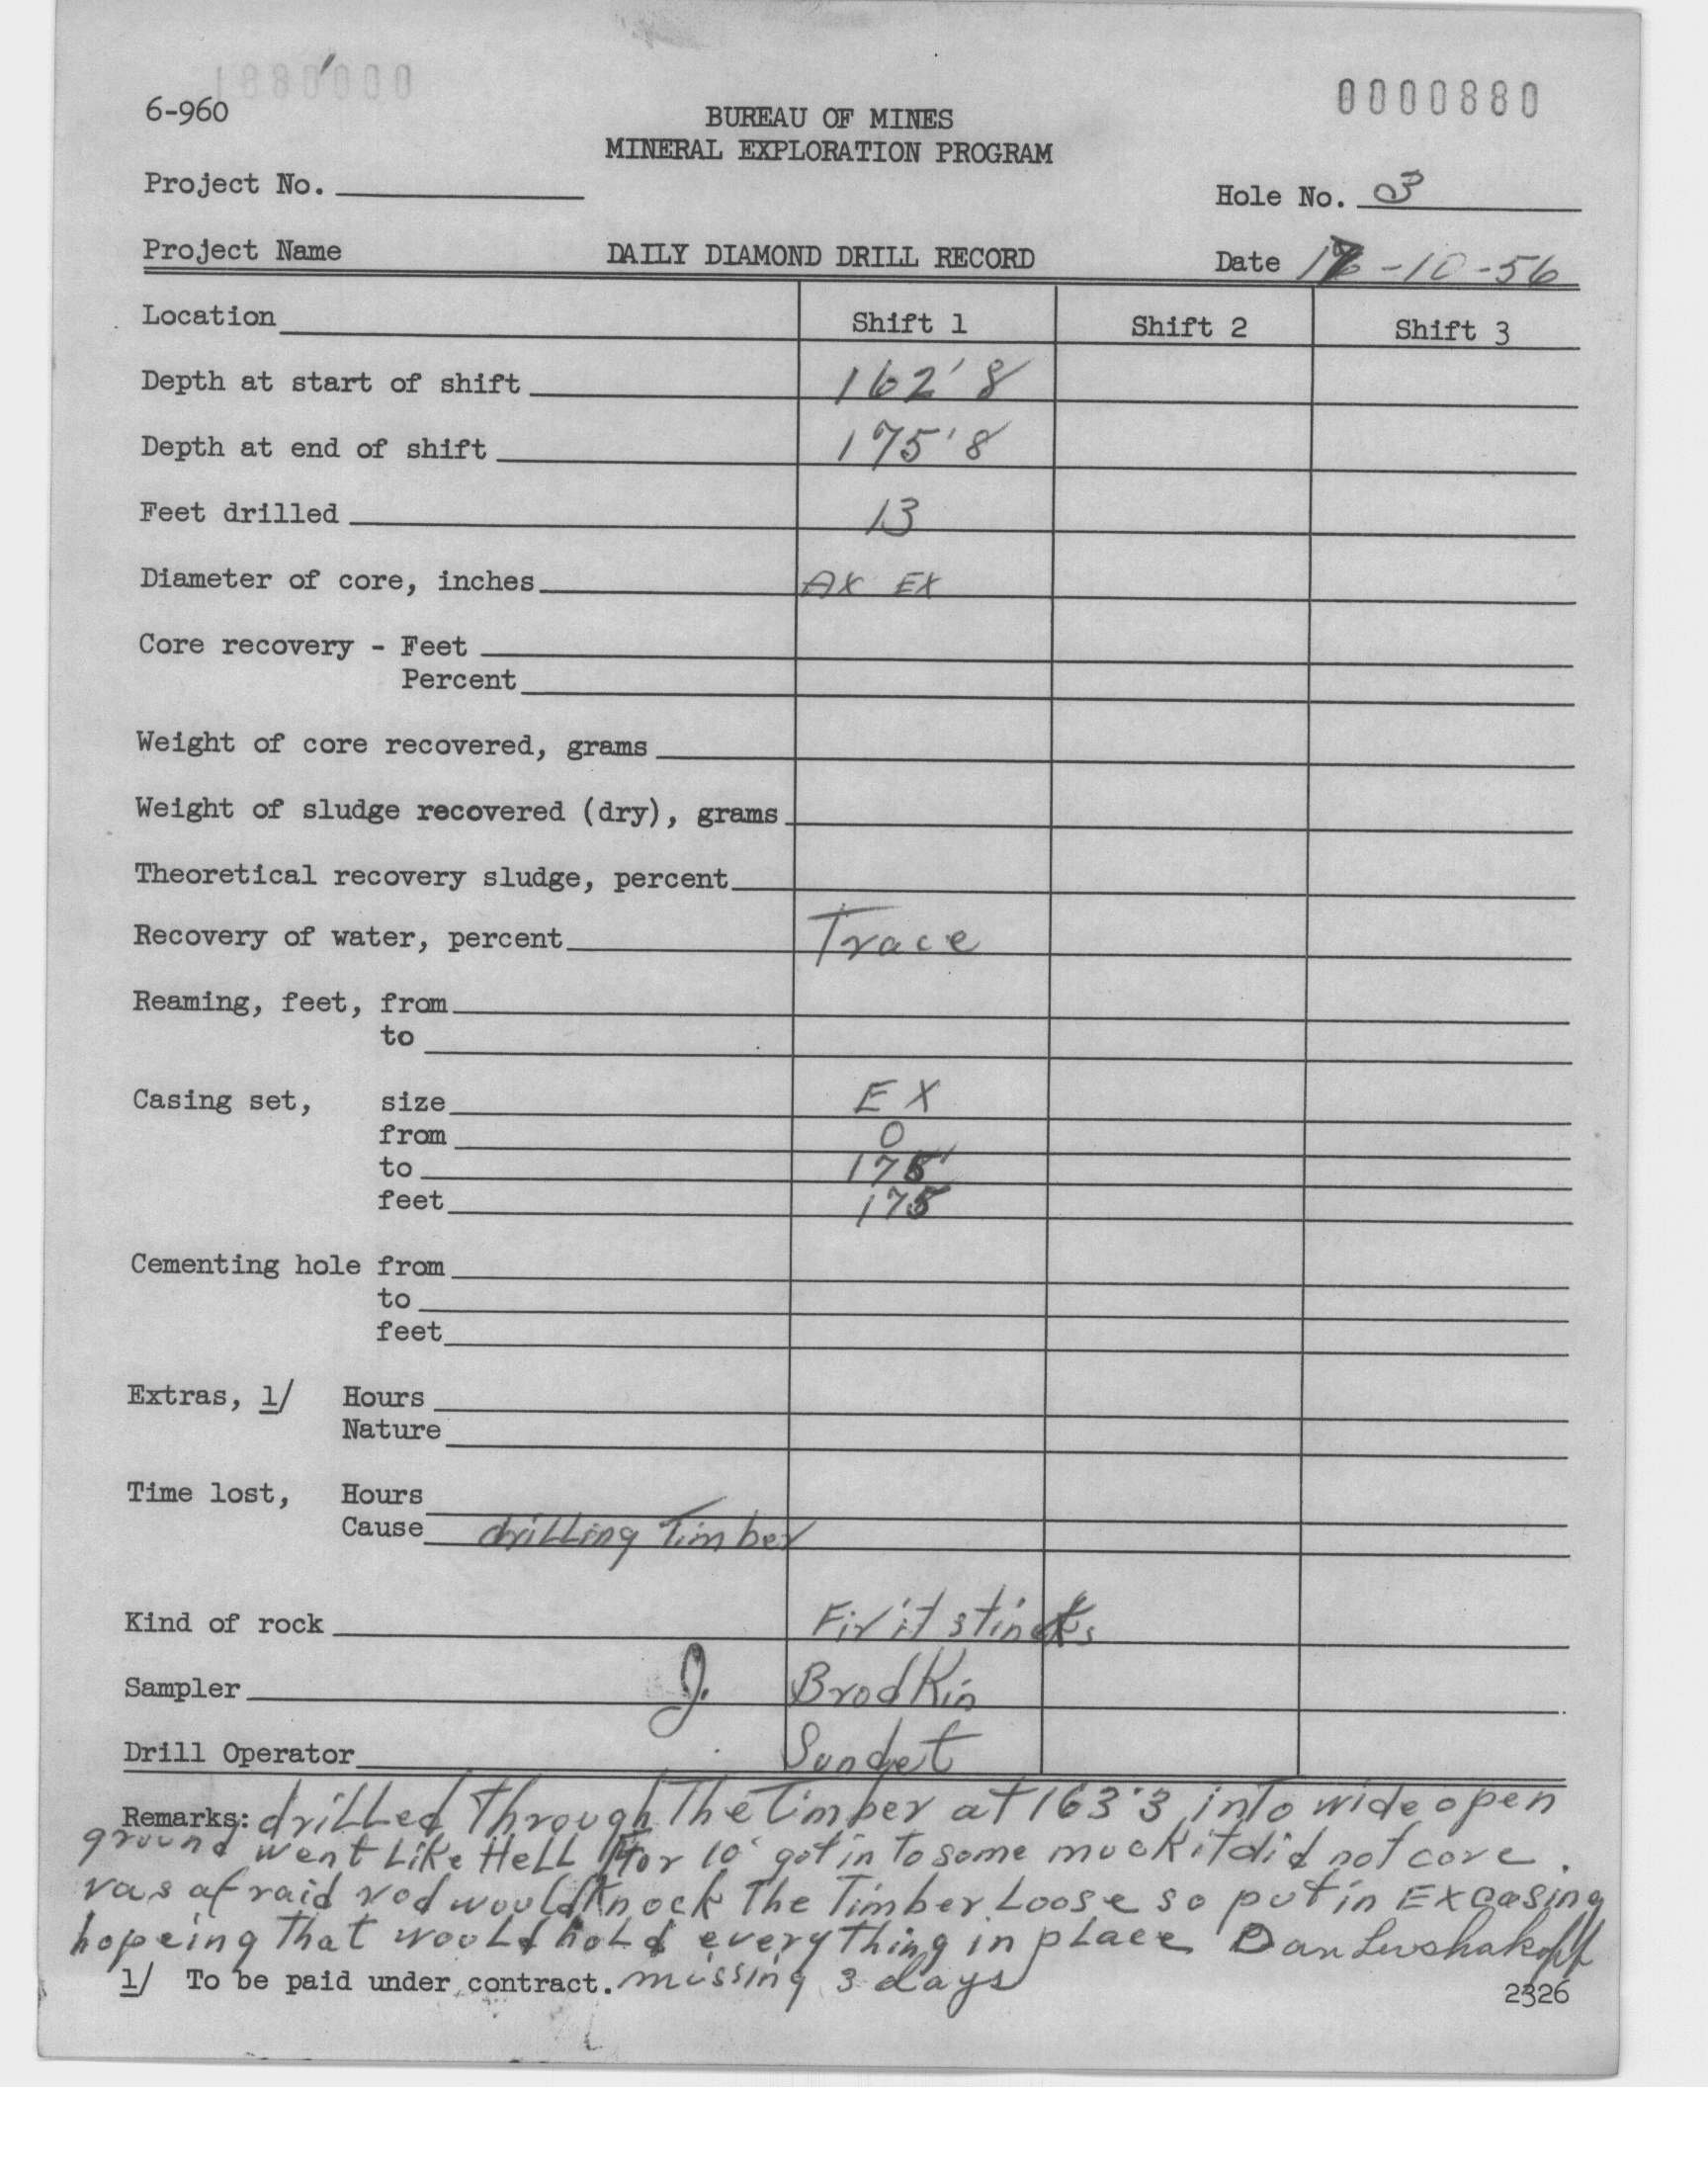 0000880
6-960
BUREAU OF MINES
MINERAL EXPLORATION PROGRAM
Project No.
Hole No. 3
Project Name DAILY DIAMOND DRILL RECORD Date -10-56
Location Shift 1 Shift 2 Shift 3
Depth at start of shift 162'8
Depth at end of shift 175'8
Feet drilled 13
Diameter of core, inches AX EX
Core recovery - Feet
Percent
Weight of core recovered, grams
Weight of sludge recovered (dry), grams
Theoretical recovery sludge, percent
Recovery of water, percent Trace
Reaming, feet, from
to
Casing set, size EX
from 0
to 175'
feet 175
Cementing hole from
to
feet
Extras, 1/ Hours
Nature
Time lost, Hours
Cause drilling Timber
Kind of rock Fir it stincks
Sampler J. Brodkin
Drill Operator Sundet
Remarks: drilled Through The Timber at 163'3 into wide open
ground went Like HeLL for 10' got in to some muck it did not core.
was afraid rod would Knock The Timber Loose so put in EX casing
hopeing That would hold everything in place Dan
1/ To be paid under contract. missing 3 days
2326